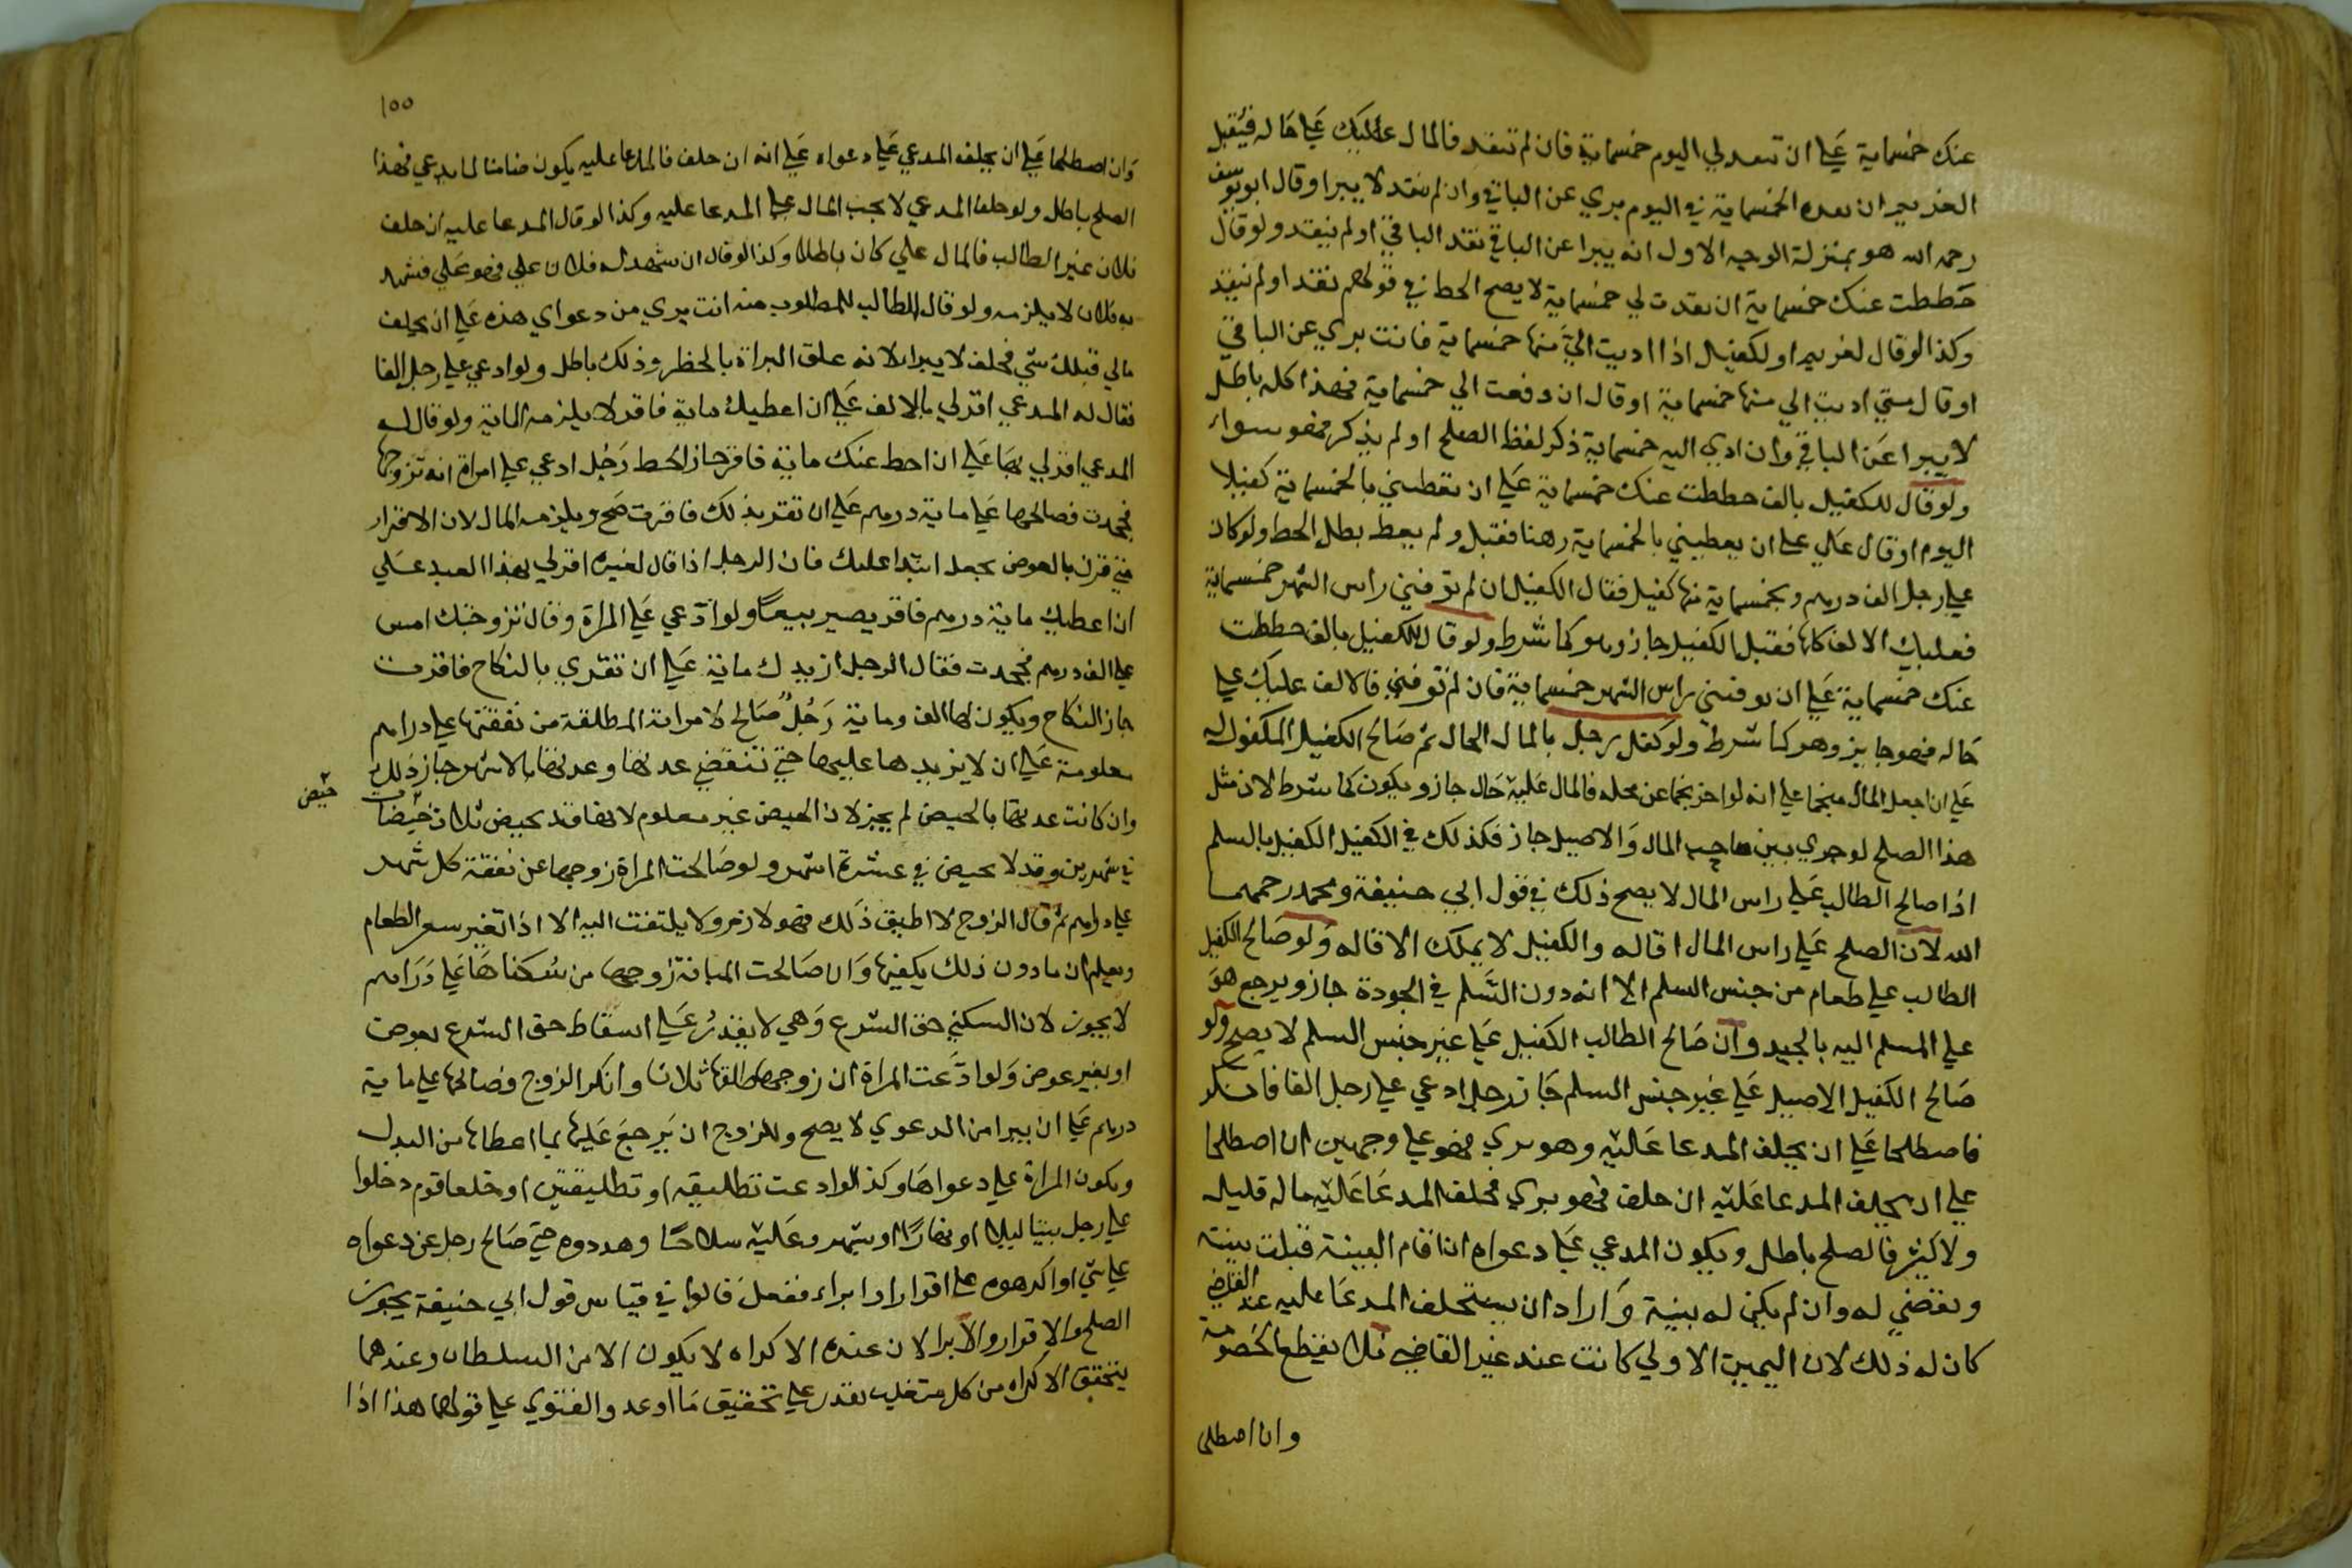 عنك خمسماية علي ان تنقد لي اليوم خمسماية فان لم تنقد فالمال عليك علي حاله فيقبل
الغريم ان نقده الخمسماية في اليوم بري عن الباقي وان لم ينقد لا يبرا وقال ابو يوسف
رحمه الله هو بمنزلة الوجه الاول انه يبرا عن الباقي نقد الباقي او لم ينقد ولو قال
حططت عنك خمسماية ان نقدت لي خمسماية لا يصح الحط في قولهم نقد او لم ينقد
وكذا لو قال لغريم او لكفيل اذا اديت الي منها خمسماية فانت بري عن الباقي
او قال متي اديت الي منها خمسماية او قال ان دفعت الي خمسماية فهذا كله باطل
لا يبرا عن الباقي وان ادي اليه خمسماية ذكر لفظ الصلح او لم يذكر فهو سواء
ولو قال للكفيل بالف حططت عنك خمسماية علي ان تعطيني بالخمسماية كفيلا
اليوم او قال علي ان يعطيني بالخمسماية رهنا فقبل ولم يعط بطل الحط ولو كان
علي رجل الف درهم وبخمسماية منها كفيل فقال الكفيل ان لم توفني راس الشهر خمسماية
فعليك الالف كلها فقبل الكفيل جاز وهو كما شرط ولو قال للكفيل بالف حططت
عنك خمسماية علي ان توفيني راس الشهر خمسماية فان لم توفني فالالف عليك علي
حاله فهو جايز وهو كما شرط ولو كفل رجل بالمال الحال ثم صالح الكفيل المكفول له
علي ان اجعل المال منجما علي انه لو اخر نجما عن محله فالمال عليه حال جاز ويكون كما شرط لان مثل
هذا الصلح لو جري بين صاحب المال والاصيل جاز فكذلك في الكفيل الكفيل بالسلم
اذا صالح الطالب علي راس المال لا يصح ذلك في قول ابي حنيفة ومحمد رحمهما
الله لان الصلح علي راس المال اقاله والكفيل لا يملك الاقاله ولو صالح الكفيل
الطالب علي طعام من جنس السلم الا انه دون السلم في الجودة جاز ويرجع هو
علي المسلم اليه بالجيد وان صالح الطالب الكفيل علي غير جنس السلم لا يصح ولو
صالح الكفيل الاصيل علي غير جنس السلم جاز رجل ادعي علي رجل الفا فانكر
فاصطلحا علي ان يحلف المدعا عليه وهو بري فهو علي وجهين ان اصطلحا
علي ان يحلف المدعا عليه ان حلف فهو بري فحلف المدعا عليه ماله قليله
ولا كثير فالصلح باطل ويكون المدعي علي دعواه ان اقام البينة قبلت بينته
ويقضي له وان لم يكن له بينة واراد ان يستحلف المدعا عليه عند القاضي
كان له ذلك لان اليمين الاولي كانت عند غير القاضي فلا يقطع الخصومة
وان اصطلحا
١٥٥
وان اصطلحا علي ان يحلف المدعي علي دعواه علي انه ان حلف فالمدعا عليه يكون ضامنا لما يدعي فهذا
الصلح باطل ولو حلف المدعي لا يجب المال علي المدعا عليه وكذا لو قال المدعا عليه ان حلف
فلان غير الطالب فالمال علي كان باطلا وكذا لو قال ان شهد لك فلان علي فهو علي فشهد
به فلان لا يلزمه ولو قال الطالب للمطلوب منه انت بري من دعواي هذه علي ان يحلف
مالي قبلك شي فحلف لا يبرا لانه علق البراة بالحظر وذلك باطل ولو ادعي علي رجل الفا
فقال له المدعي اقر لي بالالف علي ان اعطيك ماية فاقر لا يلزمه الماية ولو قال له
المدعي اقر لي بها علي ان احط عنك ماية فاقر جاز الحط رجل ادعي علي امراة انه تزوجها
فجحدت فصالحها علي ماية درهم علي ان تقر بذلك فاقرت صح ويلزمه المال لان الاقرار
متي قرن بالعوض يجعل ابتدا عليك فان الرجل اذا قال لغيره اقر لي بهذا العبد علي
ان اعطيك ماية درهم فاقر يصير بيعا ولو ادعي علي المراة وقال تزوجتك امس
علي الف درهم فجحدت فقال الرجل ازيدك ماية علي ان تقري بالنكاح فاقرت
جاز النكاح ويكون لها الف وماية رجل صالح لامراته المطلقة من نفقتها علي دراهم
معلومة علي ان لا يزيدها عليها حتي تنقضي عدتها وعدتها بالاشهر جاز ذلك
وان كانت عدتها بالحيض لم يجز لان الحيض غير معلوم لانها قد تحيض ثلاث حيضات
حيض
في شهرين وقد لا تحيض في عشرة اشهر ولو صالحت المراة زوجها عن نفقة كل شهر
علي دراهم ثم قال الزوج لا اطيق ذلك فهو لازم ولا يلتفت اليه الا اذا تغير سعر الطعام
ويعلم ان ما دون ذلك يكفيها وان صالحت المبانة زوجها من سكناها علي دراهم
لا يجوز لان السكني حق الشرع وهي لا يقدر علي اسقاط حق الشرع بعوض
او بغير عوض ولو ادعت المراة ان زوجها طلقها ثلاثا وانكر الزوج فصالحها علي ماية
درهم علي ان يبرا من الدعوي لا يصح وللزوج ان يرجع عليها بما اعطاها من البدل
ويكون المراة علي دعواها وكذا لو ادعت تطليقه او تطليقتين او خلعا قوم دخلوا
علي رجل بيتا ليلا او نهارا او شهر وعليه سلاحا وهددوه حتي صالح رجل عن دعواه
علي شي او اكرهوه علي اقرار او ابراء ففعل قالوا في قياس قول ابي حنيفة يجوز
الصلح والاقرار والابرا لان عنده الاكراه لا يكون الا من السلطان وعندهما
يتحقق الاكراه من كل متغلب يقدر علي تحقيق ما اوعد والفتوي علي قولهما هذا اذا